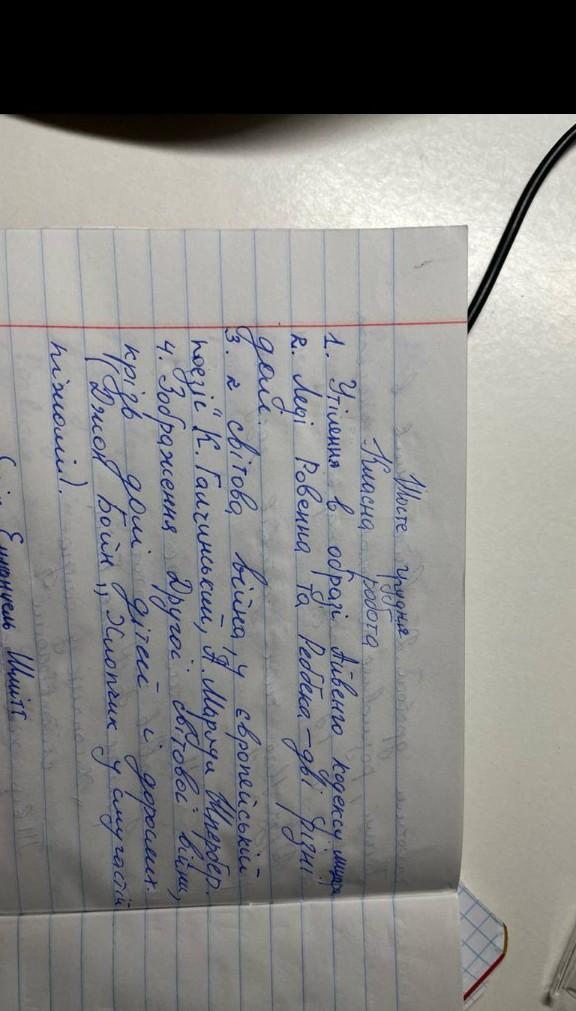 Шосте грудня
Класна робота
1. Утілення в образі Айвенго кодексу
2. Леді Ровенна та Ребека – дві різні
долі.
3. 2 світова війна, у європейській
поезії К. Галчинський, А. Марчел Шнербер.
4. Зображення Другої світової війни,
крізь долі дітей і дорослих.
(Джон Бойн „Хлопчик у смугастій
піжамі).
Еммануель Шмітт